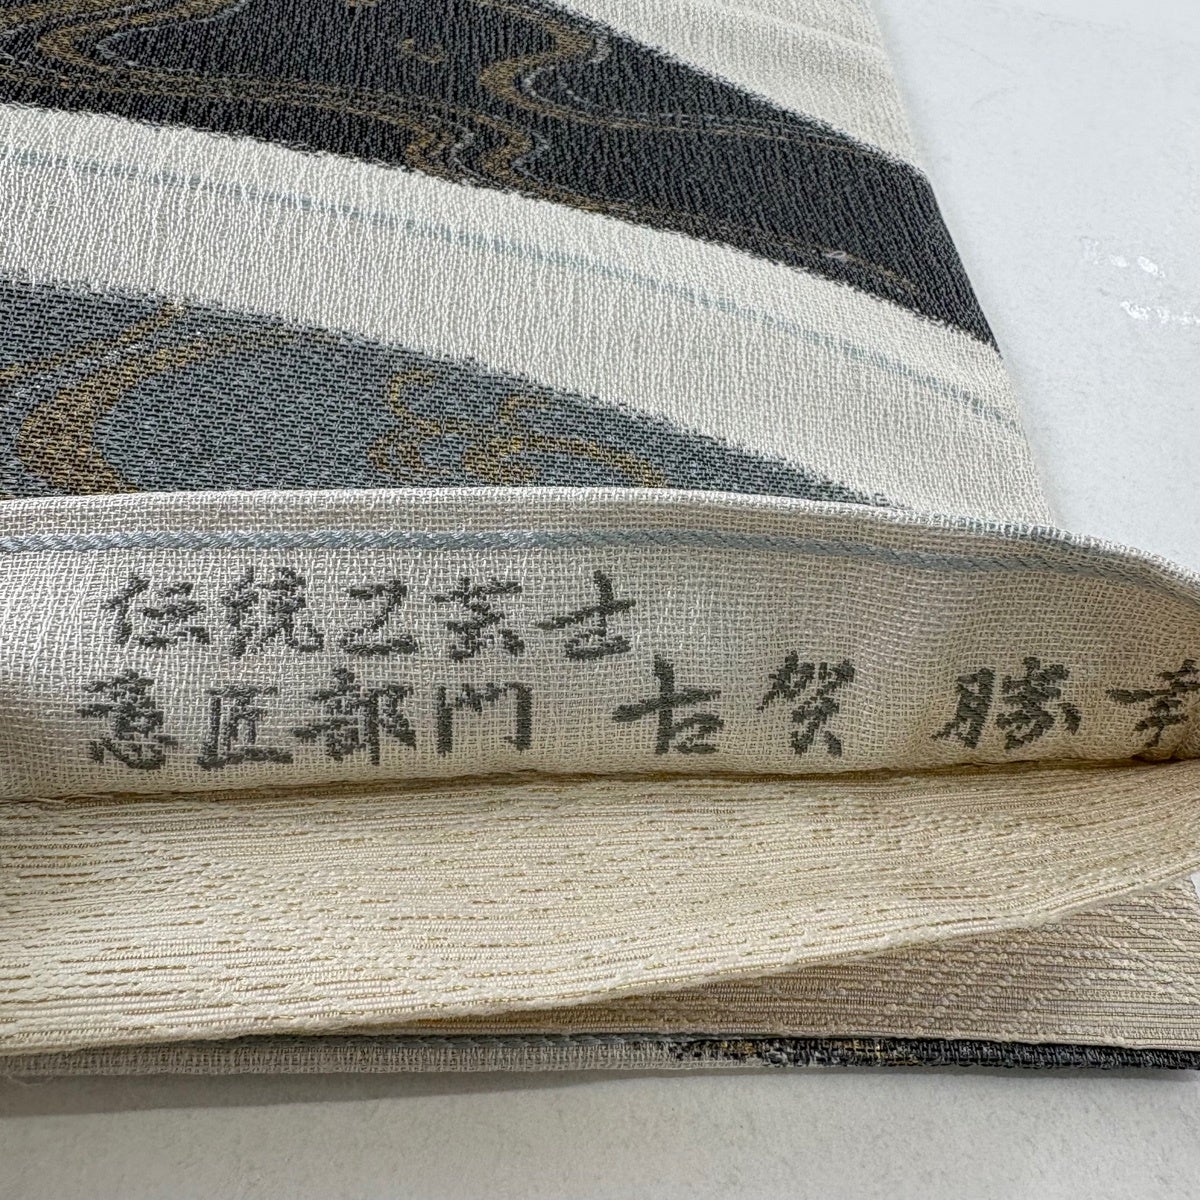 伝統工芸士
意匠部門 古賀 勝幸